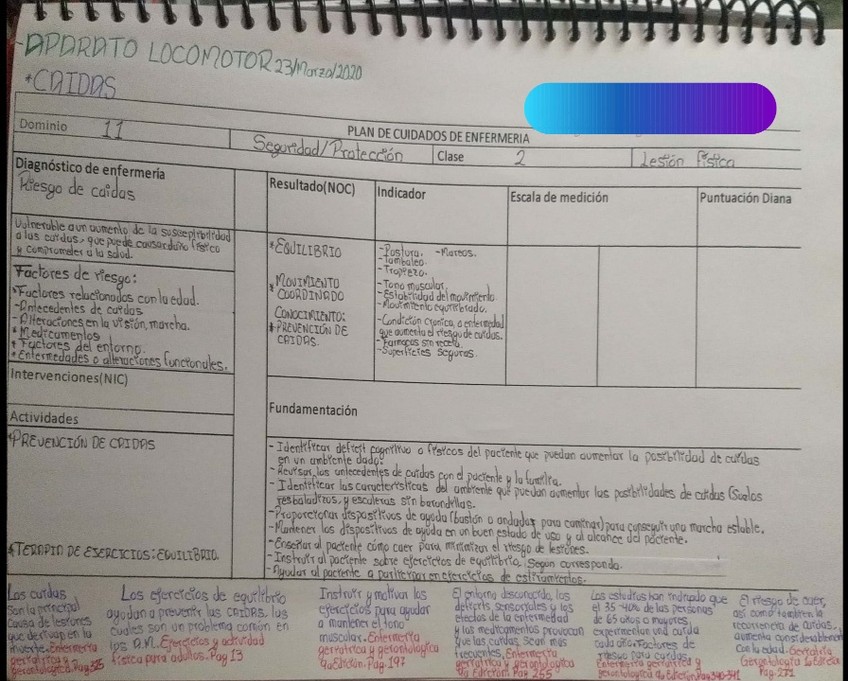 -APARATO LOCOMOTOR 23/Marzo/2020
*CAIDAS
PLAN DE CUIDADOS DE ENFERMERIA
Dominio 11 Seguridad/Protección Clase 2 Lesión física
Diagnóstico de enfermería
Riesgo de caidas
Vulnerable a un aumento de la susceptibilidad
a las caidas, que puede causar daño físico
y comprometer a la salud.
Factores de riesgo:
*Factores relacionados con la edad.
-Antecedentes de caidas
-Alteraciones en la visión, marcha.
*Medicamentos
*Factores del entorno.
*Enfermedades o alteraciones funcionales.
Resultado(NOC)
*EQUILIBRIO
*MOVIMIENTO
COORDINADO
CONOCIMIENTO:
*PREVENCIÓN DE
CAIDAS.
Indicador
-Postura. -Mareos.
-Tambaleo.
-Tropiezo.
-Tono muscular.
-Estabilidad del movimiento
-Movimiento equilibrado.
-Condición cronica, o enfermedad
que aumenta el riesgo de caidas.
-Farmacos sin receta.
-Superficies seguras.
Escala de medición
Puntuación Diana
Intervenciones(NIC)
Actividades
*PREVENCIÓN DE CAIDAS
*TERAPIA DE EJERCICIOS: EQUILIBRIO.
Fundamentación
-Identificar déficit cognitivo o físicos del paciente que puedan aumentar la posibilidad de caidas
en un ambiente dado.
-Revisar los antecedentes de caidas con el paciente y la familia.
-Identificar las características del ambiente que puedan aumentar las posibilidades de caidas (Suelos
resbaladizos, y escaleras sin barandillas.
-Proporcionar dispositivos de ayuda (bastón o andador para caminar) para conseguir una marcha estable.
-Mantener los dispositivos de ayuda en un buen estado de uso y al alcance del paciente.
-Enseñar al paciente cómo caer para minimizar el riesgo de lesiones.
-Instruir al paciente sobre ejercicios de equilibrio, según corresponda.
-Ayudar al paciente a participar en ejercicios de estiramientos.
Las caidas
son la principal
causa de lesiones
que derivan en la
muerte. Enfermería
geriatrica y
gerontologica Pag.
Los ejercicios de equilibrio
ayudan a prevenir las CAIDAS. las
cuales son un problema común en
los A.M. Ejercicios y actividad
física para adultos. Pag 13
Instruir y motivar los
ejercicios para ayudar
a mantener el tono
muscular. Enfermería
geriatrica y gerontologica
Edición. Pag. 197
El entorno desconocido, los
déficits sensoriales y los
efectos de la enfermedad
y los medicamentos provocan
que las caidas sean más
frecuentes. Enfermería
geriatrica y gerontologica
Edición Pag 255
Los estudios han indicado que
el 35-40% de las personas
de 65 años o mayores
experimentan una caida
cada año. Factores de
riesgo para caidas.
Enfermería geriatrica y
gerontologica Edición Pag 340-341
El riesgo de caer,
así como también la
recurrencia de caidas,
aumenta considerablemente
con la edad. Geriatría
Gerontología Edición
Pag. 271